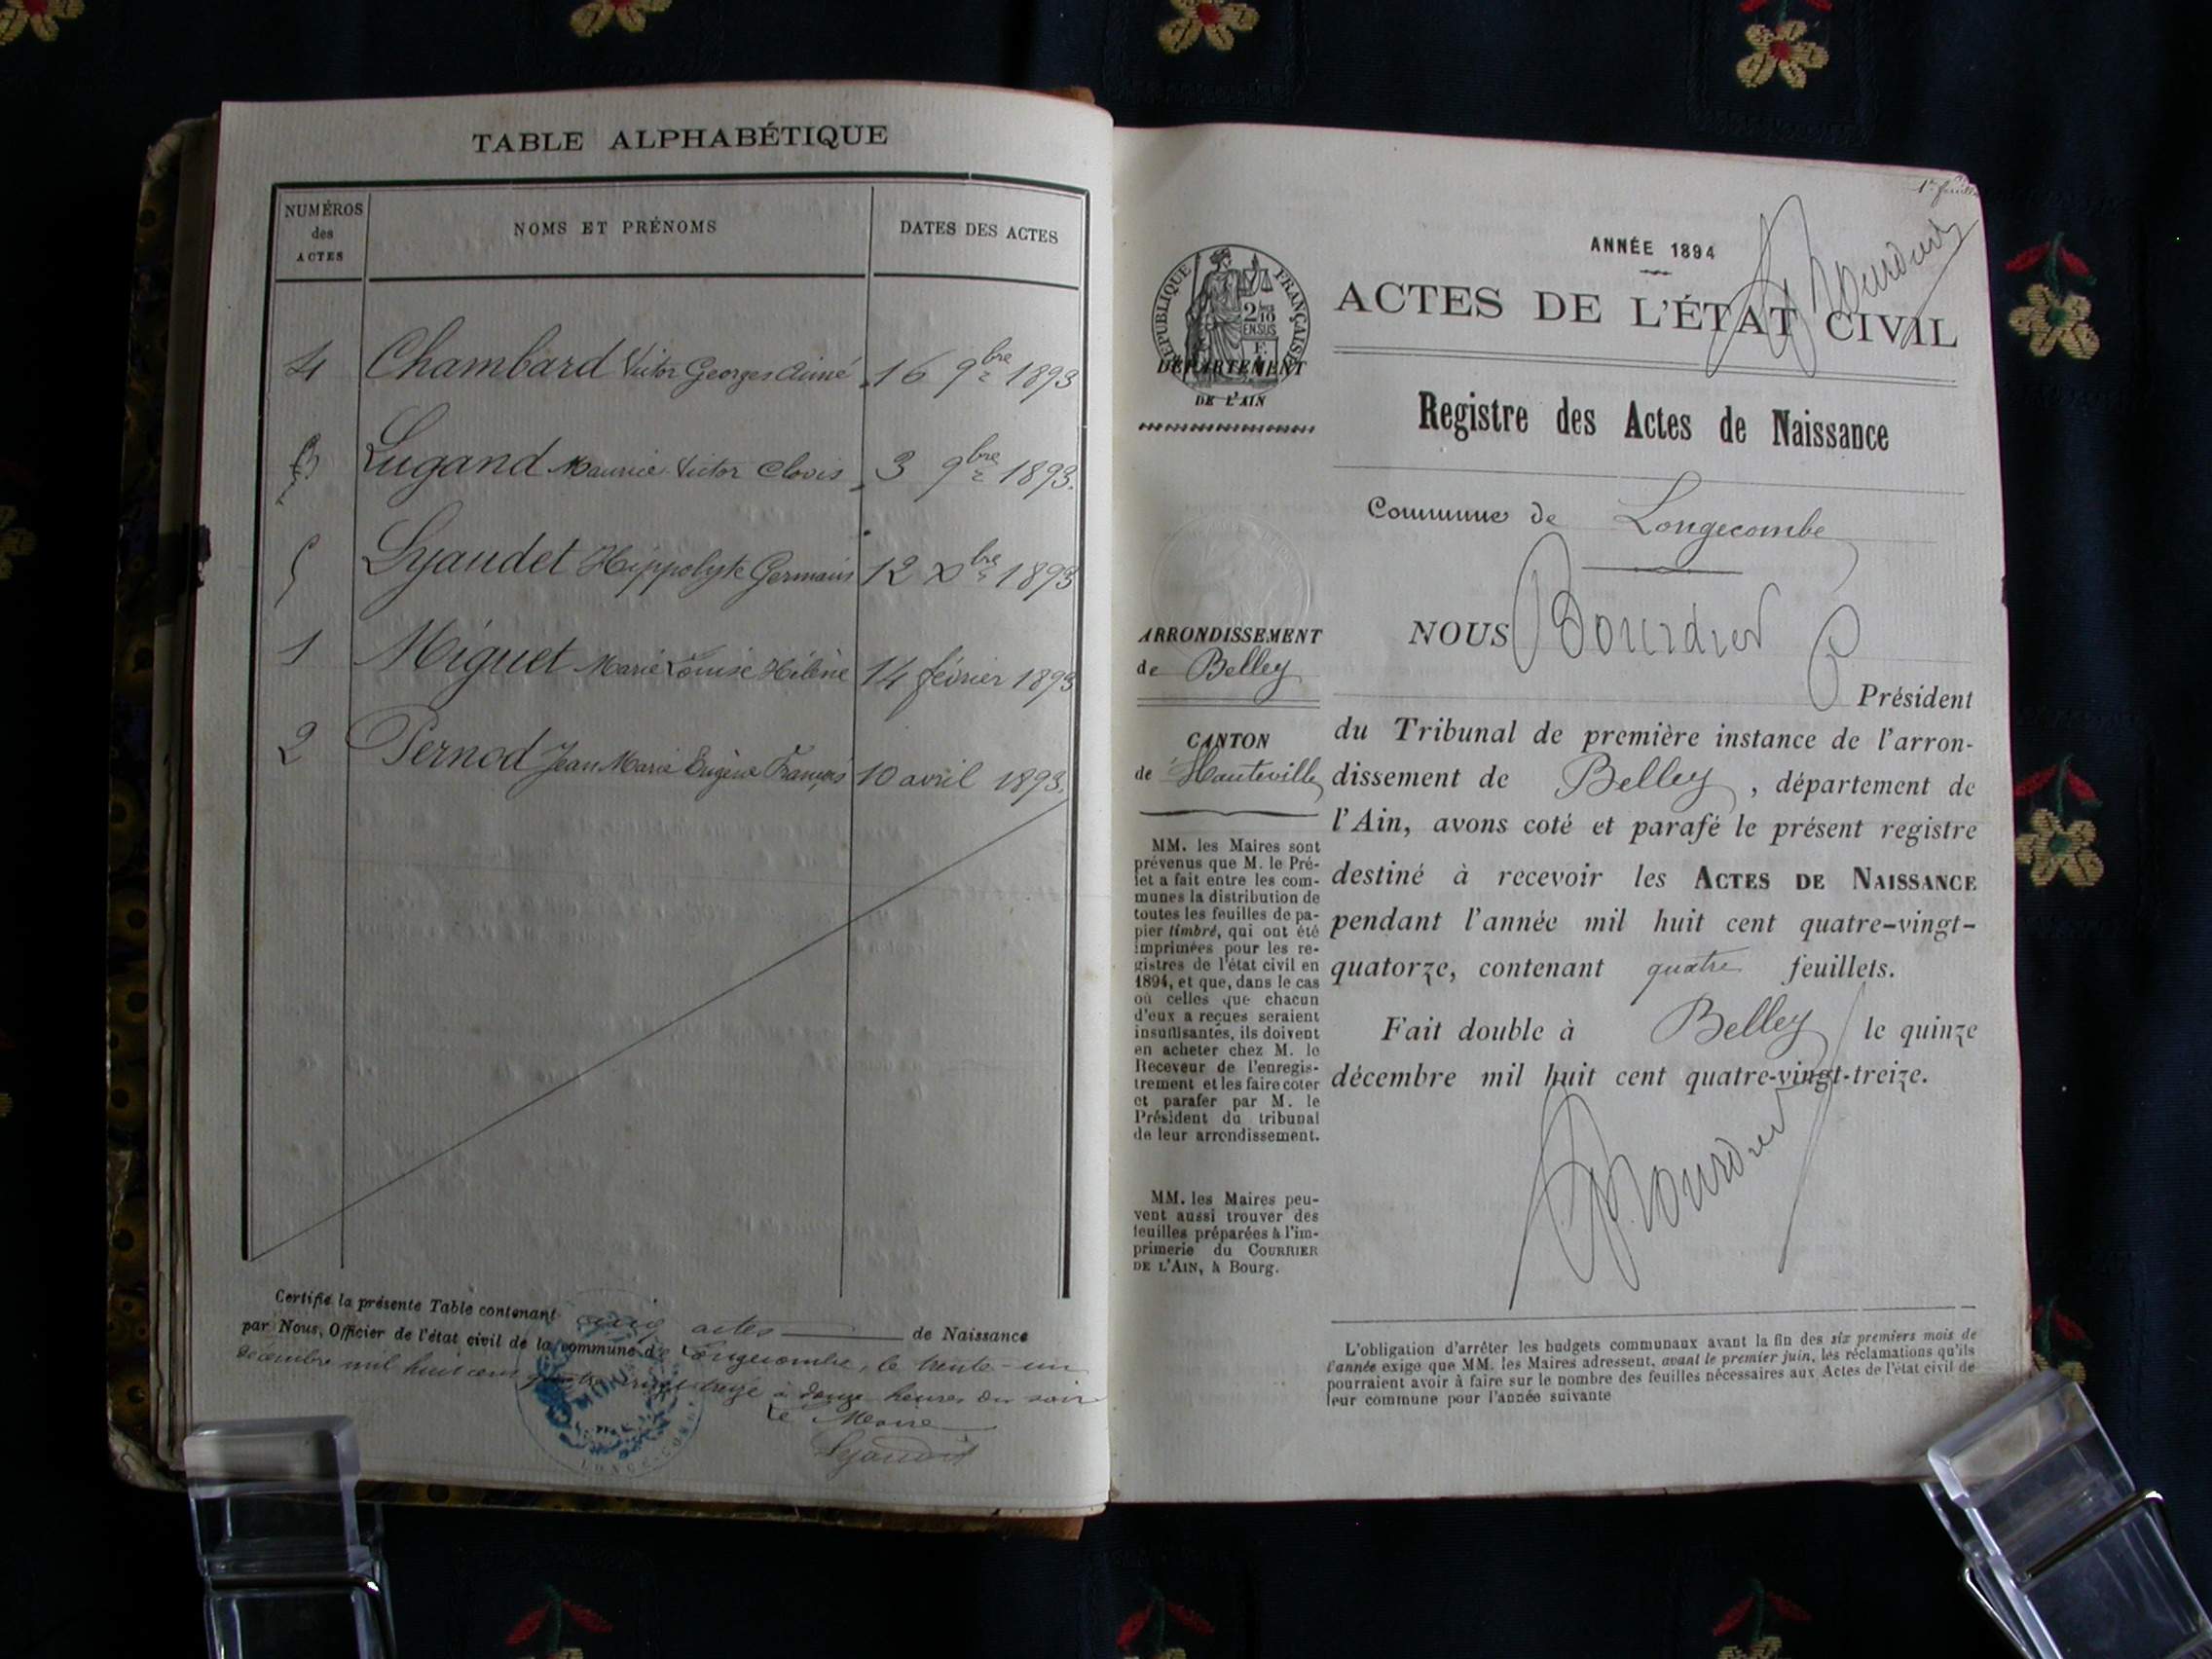 TABLE ALPHABÉTIQUE
NUMÉROS des ACTES
NOMS ET PRÉNOMS
DATES DES ACTES
4 Chambard Victor Georges Aimé 16 9bre 1893
3 Lugand Maurice Victor Clovis 3 9bre 1893.
5 Lyaudet Hippolyte Germain 12 Xbre 1893
1 Miguet Marie Louise Hélène 14 février 1893
2 Pernod Jean Marie Eugène François 10 avril 1893.
Certifié la présente Table contenant cinq actes de Naissance
par Nous, Officier de l'état civil de la commune de Longecombe, le trente-un
décembre mil huit cent quatre vingt treize à douze heures du soir
Le Maire
Lyaudet
1er feuillet
ANNÉE 1894
ACTES DE L'ÉTAT CIVIL
Bourdier
RÉPUBLIQUE FRANÇAISE
DÉPARTEMENT
DE L'AIN
Registre des Actes de Naissance
Commune de Longecombe
ARRONDISSEMENT
de Belley
CANTON
de Hauteville
MM. les Maires sont
prévenus que M. le Pré-
fet a fait entre les com-
munes la distribution de
toutes les feuilles de pa-
pier timbré, qui ont été
imprimées pour les re-
gistres de l'état civil en
1894, et que, dans le cas
où celles que chacun
d'eux a reçues seraient
insuffisantes, ils doivent
en acheter chez M. le
Receveur de l'enregis-
trement et les faire coter
et parafer par M. le
Président du tribunal
de leur arrondissement.
MM. les Maires peu-
vent aussi trouver des
feuilles préparées à l'im-
primerie du COURRIER
DE L'AIN, à Bourg.
NOUS Bourdier
Président
du Tribunal de première instance de l'arron-
dissement de Belley, département de
l'Ain, avons coté et parafé le présent registre
destiné à recevoir les ACTES DE NAISSANCE
pendant l'année mil huit cent quatre-vingt-
quatorze, contenant quatre feuillets.
Fait double à Belley le quinze
décembre mil huit cent quatre-vingt-treize.
Bourdier
L'obligation d'arrêter les budgets communaux avant la fin des six premiers mois de
l'année exige que MM. les Maires adressent, avant le premier juin, les réclamations qu'ils
pourraient avoir à faire sur le nombre des feuilles nécessaires aux Actes de l'état civil de
leur commune pour l'année suivante